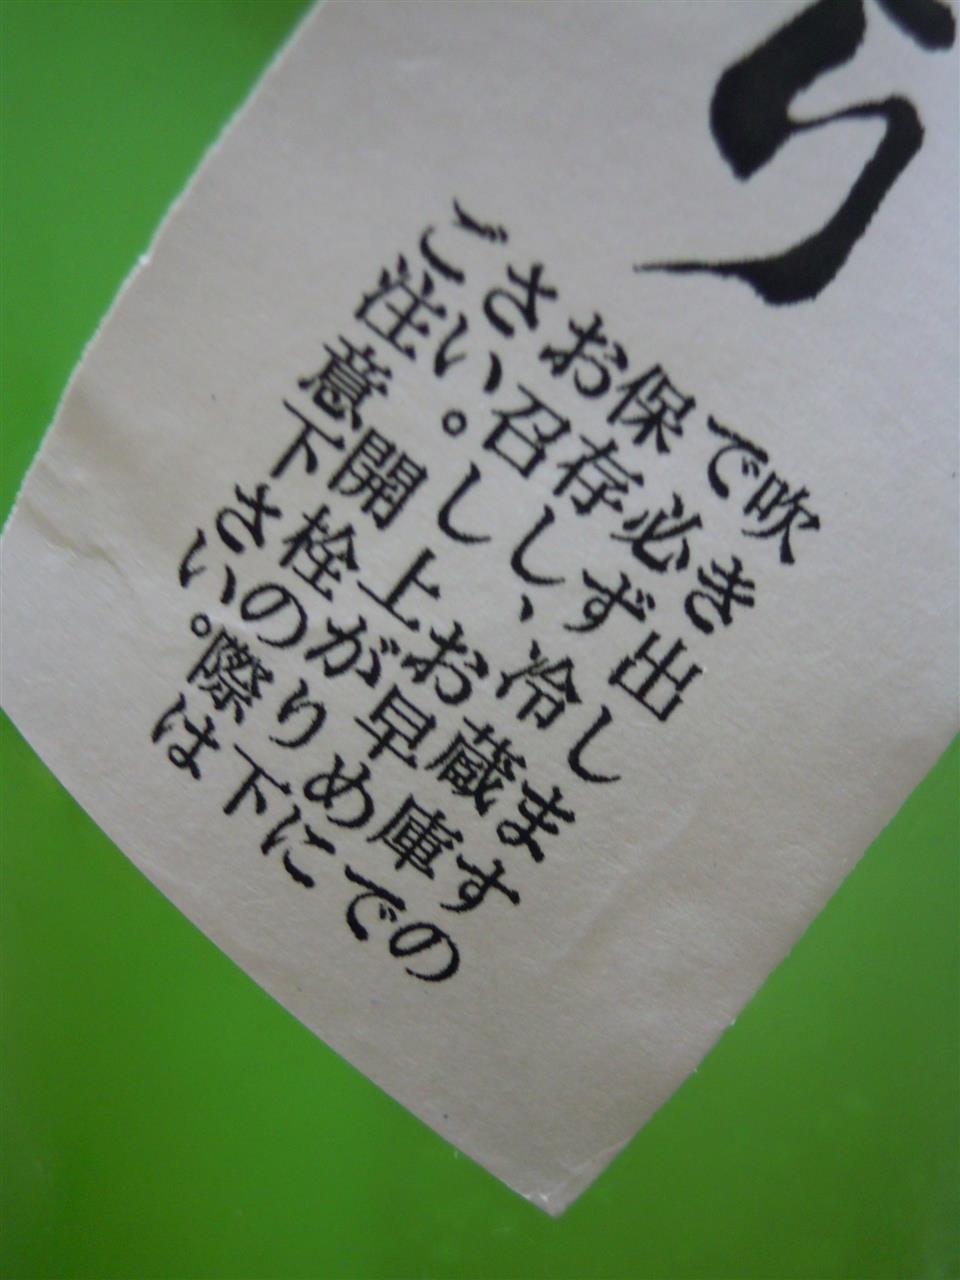 ら
吹き出しますので
必ず冷蔵庫で
保存し、お早めに
お召し上がり下
さい。開栓の際は
ご注意下さい。